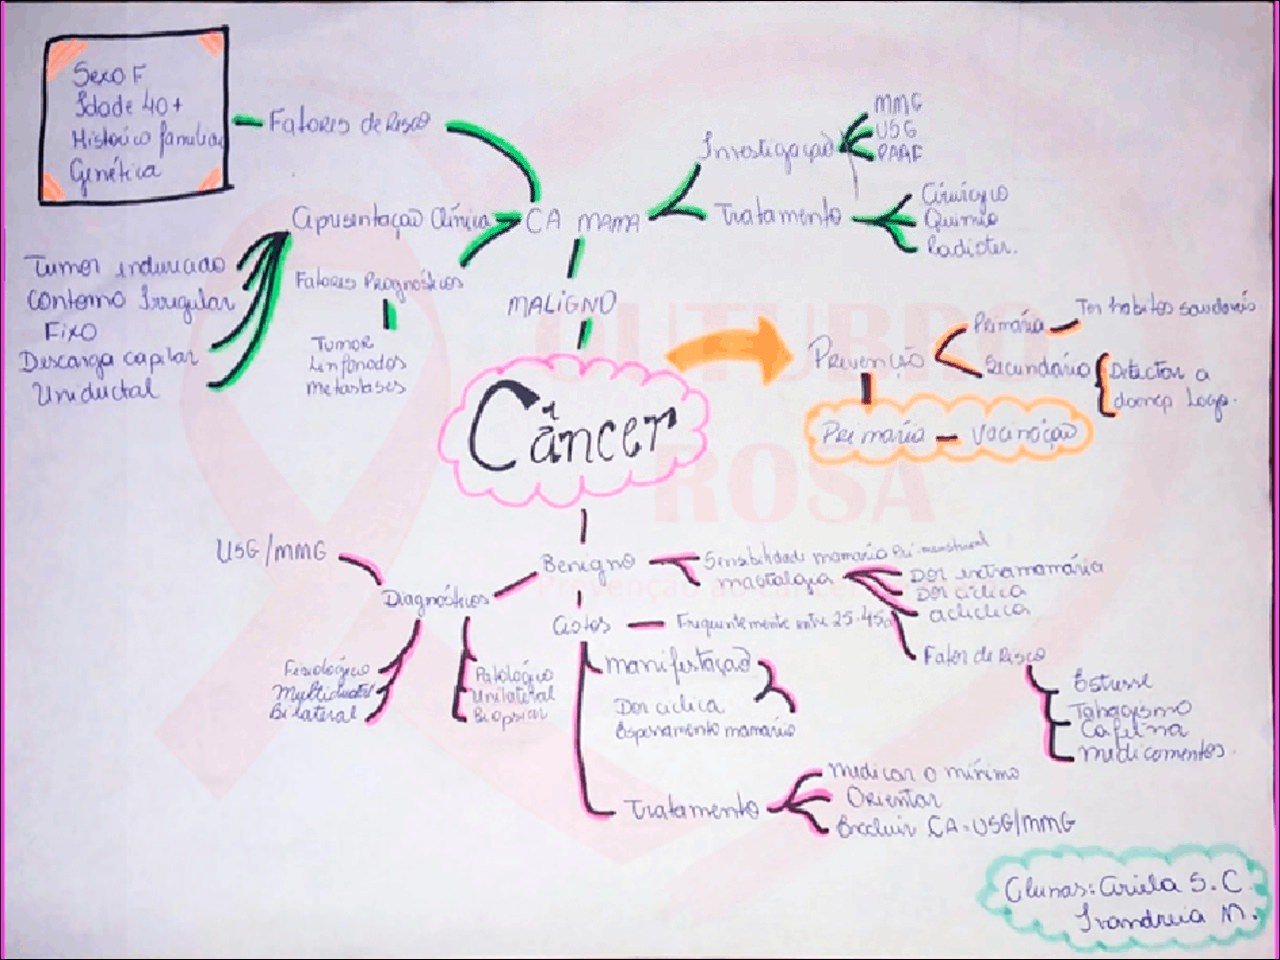 Sexo F
Idade 40+
Histórico familiar
Genética
Fatores de Risco
Apresentação Clínica
Tumor endurecido
Contorno Irregular
Fixo
Descarga capilar
Uniductal
Fatores Prognósticos
Tumor
Linfonodos
Metastases
CA MAMA
Investigação
MMG
USG
PAAF
Tratamento
Cirurgia
Quimio
Radioter.
MALIGNO
Câncer
Prevenção
Primária
Ter habitos saudaveis
Secundário
Detectar a
doença logo.
Primaria - Vacinação
OUTUBRO
ROSA
Prevenção ao câncer
Benigno
Sensibilidade mamaria Pré-menstrual
mastalgia
Dor extramamária
Dor ciclica
aciclica
Fator de Risco
Estresse
Tabagismo
Cafeína
medicamentos.
USG/MMG
Diagnósticos
Fisiológico
Multiductal
Bilateral
Patológico
Unilateral
Biopsiar
Cistos
Frequentemente entre 25-45a
Manifestação
Dor ciclica
Espessamento mamário
Tratamento
Medicar o mínimo
Orientar
Excluir CA-USG/MMG
Alunas: Ariela S. C.
Ivandreia M.